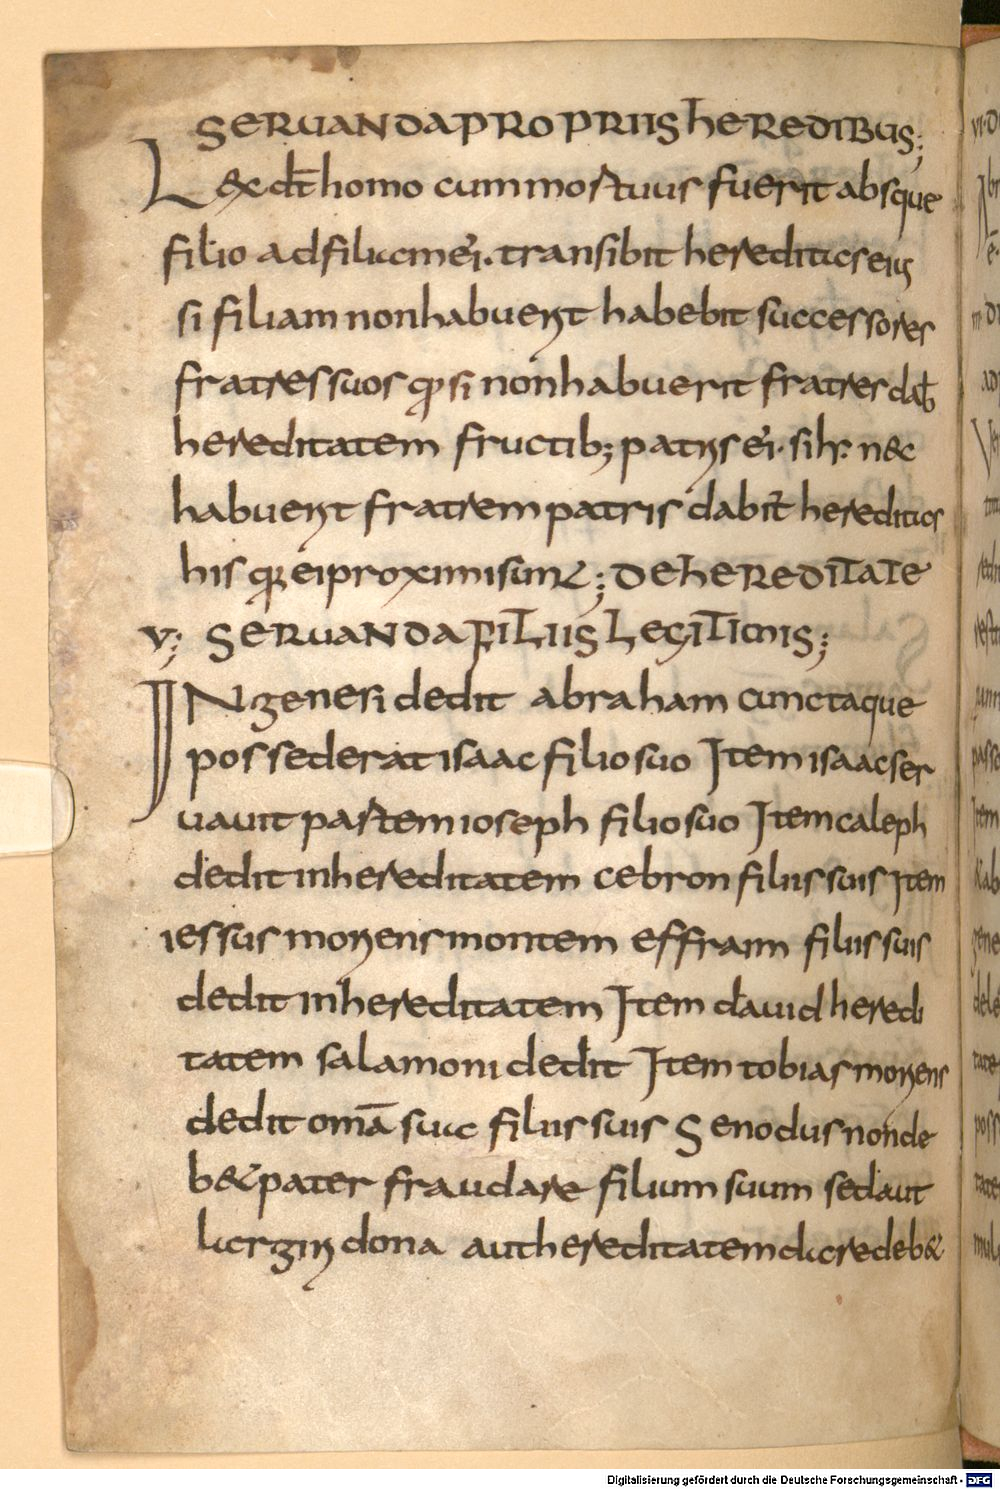 SERUANDA PROPRIIS HEREDIBUS;
Lex dt̄ homo cum mortuus fuerit absque
filio ad filiam ei. transibit hereditas eius
si filiam non habuerit habebit successores
fratres suos qđ si non habuerit fratres dab̄
hereditatem fructib; patris ei. si hr̄ nec
habuerit fratrem patris dabit̄ hereditas
his qui ei proximi sunt; DE HEREDITATE
V; SERUANDA FILIIS LEGITIMIS;
IN generi dedit abraham cunctaque
possederat isaac filio suo Item isaac ser
uauit partem ioseph filio suo Item caleph
dedit in hereditatem cebron filiis suis Item
iessus moriens montem effraim filiis suis
dedit in hereditatem Item dauid heredi
tatem salamoni dedit Item tobias moriens
dedit omā sua filiis suis Senodus non de
b& pater fraudare filium suum sed aut
largiri dona aut hereditatem dare deb&
Digitalisierung gefördert durch die Deutsche Forschungsgemeinschaft - DFG